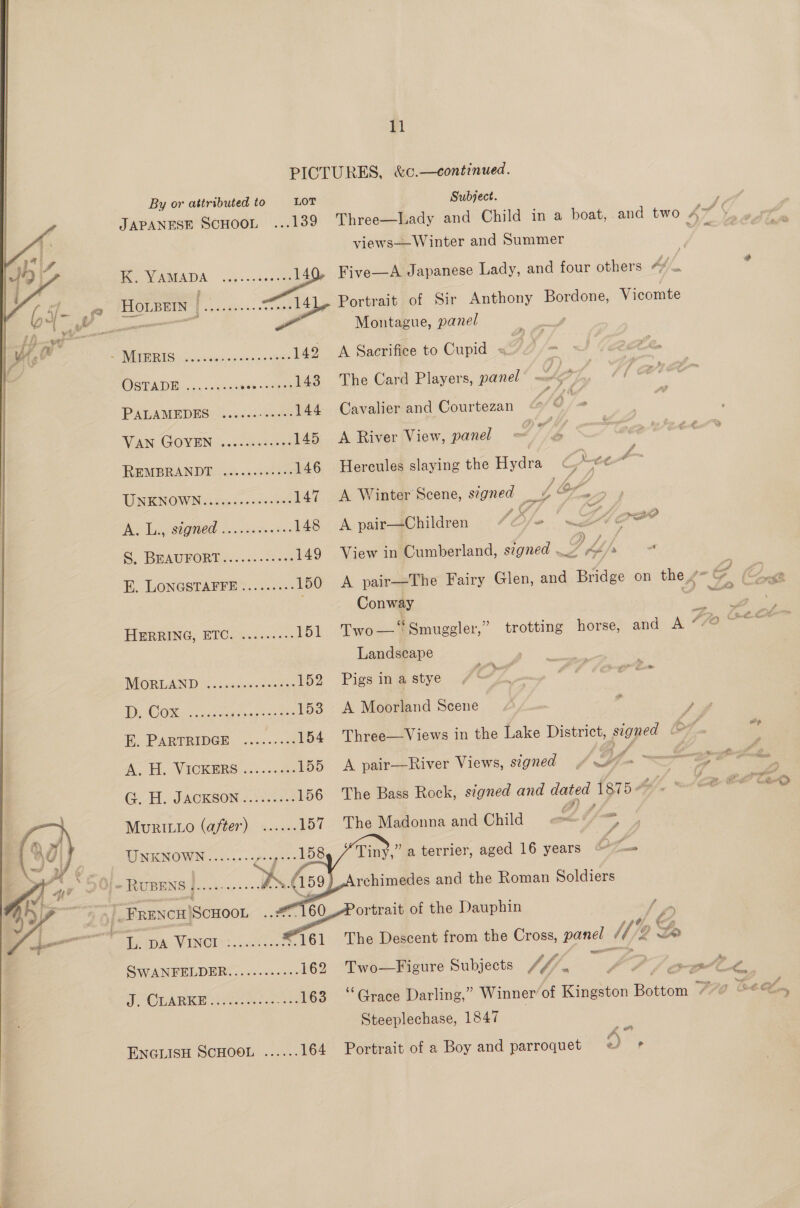 11
PICTURES, &c.—continued.
By or attributed to LOT Subject.
JAPANESE SCHOOL ...139 Three—Lady and Child in a boat, and two
views—Winter and Summer
K. YAMADA ............140 Five—A Japanese Lady, and four others
HOLBEIN ............141 Portrait of Sir Anthony Bordone, Vicomte
Montague, panel
MIERIS ..................142 A Sacrifice to Cupid
OSTADE ..................143 The Card Players, panel
PALAMEDES ............144 Cavalier and Courtezan
VAN GOYEN ............145 A River View, panel
REMBRANDT ............146 Hercules slaying the Hydra
UNKNOWN...............147 A Winter Scene, signed
A. L., signed ............148 A pair—Children
S. BEAUFORT............149 View in Cumberland, signed
E. LONGSTAFFE .........150 A pair—The Fairy Glen, and Bridge on the
Conway
HERRING, ETC. .........151 Two—“Smuggler,” trotting horse, and A
Landscape
MORLAND ...............152 Pigs in a stye
D. COX ..................153 A Moorland Scene
E. PARTRIDGE .........154 Three—Views in the Lake District, signed
A. H. VICKERS .........155 A pair—River Views, signed
G. H. JACKSON.........156 The Bass Rock, signed and dated 1875
MURILLO (after) ......157 The Madonna and Child
UNKNOWN............158 “Tiny,” a terrier, aged 16 years
RUBENS ............159 Archimedes and the Roman Soldiers
FRENCH SCHOOL ...160 Portrait of the Dauphin
L. DA VINCI .........161 The Descent from the Cross, panel
SWANFELDER............162 Two—Figure Subjects
J. CLARKE...............163 “Grace Darling,” Winner of Kingston Bottom
Steeplechase, 1847
ENGLISH SCHOOL ......164 Portrait of a Boy and parroquet